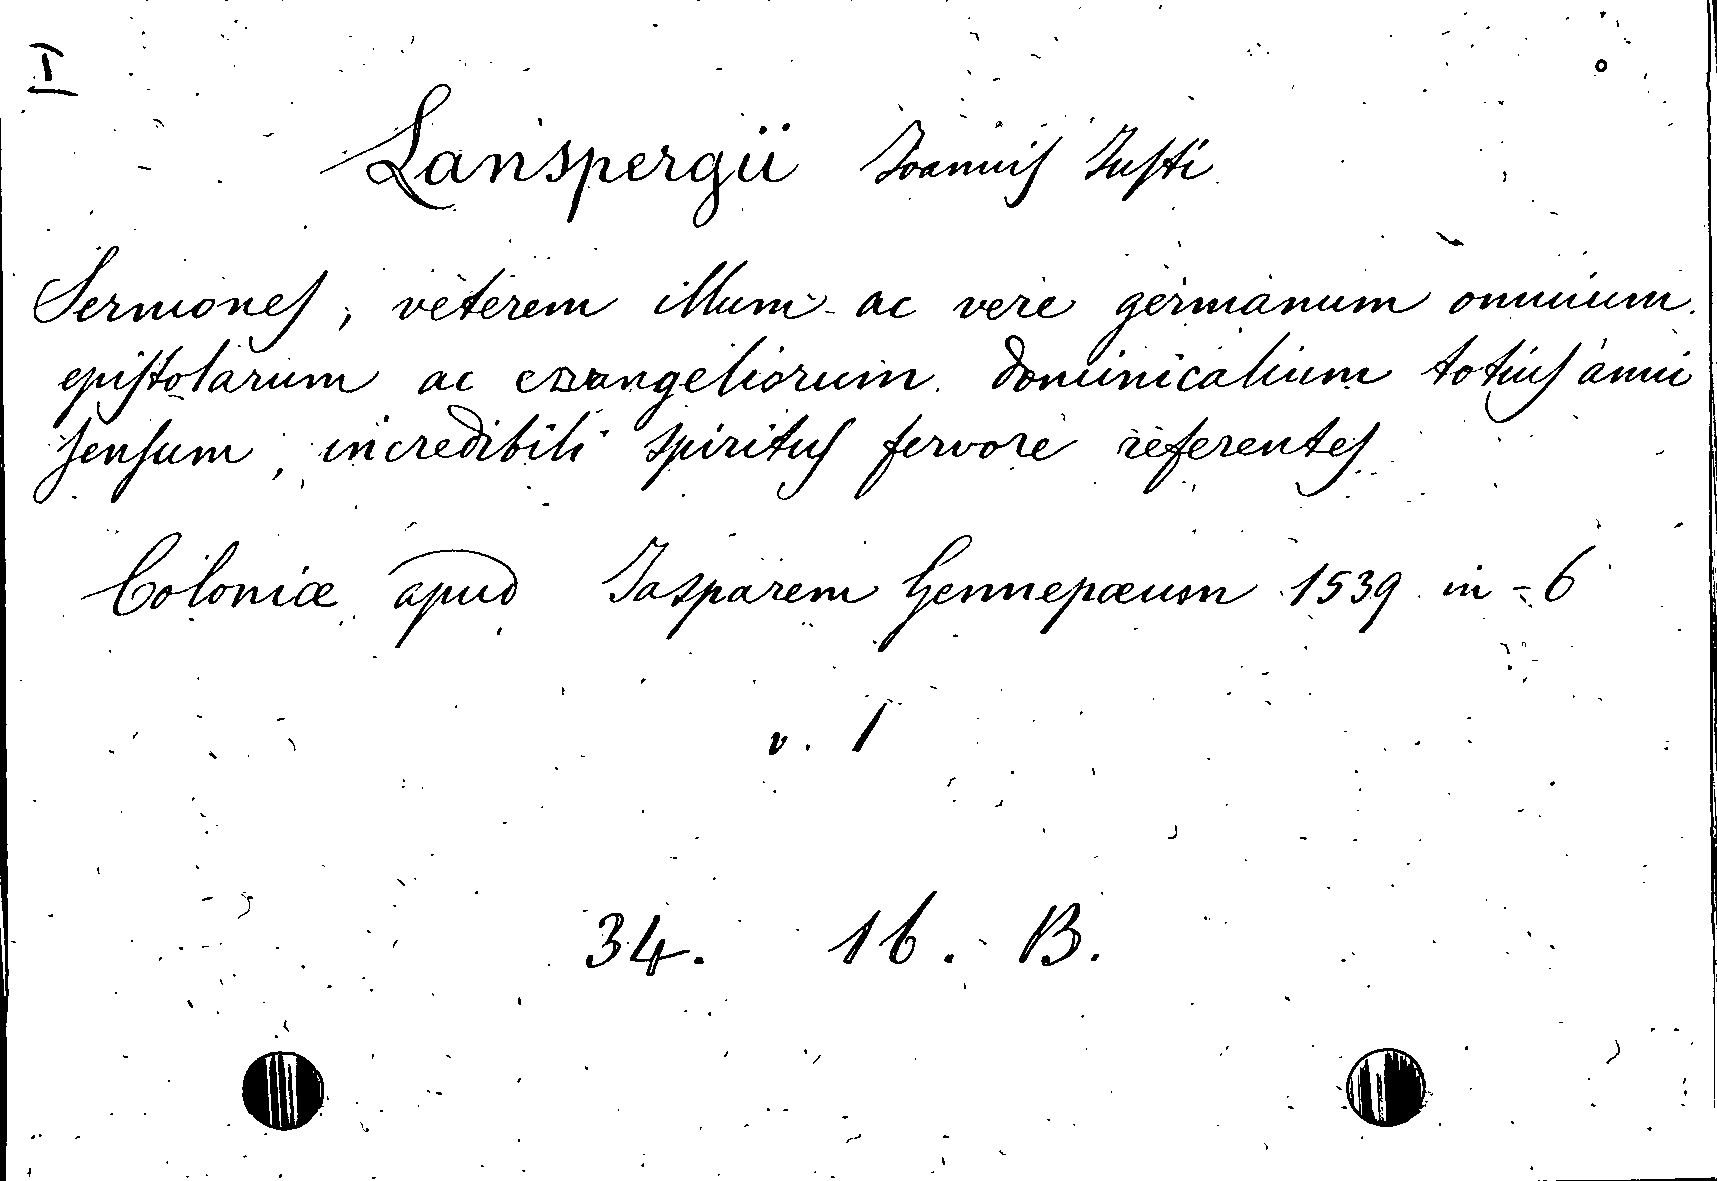 I
Lanspergii Joannis Justi
Sermones, veterem illum ac vere germanum omnium
epistolarum ac evangeliorum dominicalium totius anni
sensum, incredibili spiritus fervore referentes
Coloniæ apud Jasparem Gennepæum 1539 in-6
v. 1
34. 16. B.